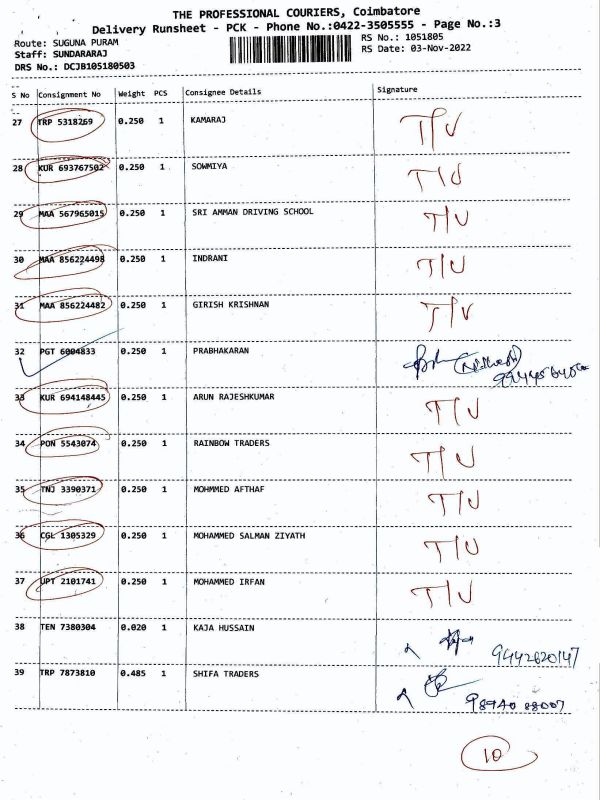 THE PROFESSIONAL COURIERS, Coimbatore
Delivery Runsheet - PCK - Phone No.:0422-3505555 - Page No.:3
Route: SUGUNA PURAM RS No.: 1051805
Staff: SUNDARARAJ RS Date: 03-Nov-2022
DRS No.: DCJB105180503
S No Consignment No Weight PCS Consignee Details Signature
27 TRP 5318269 0.250 1 KAMARAJ T/U
28 KUR 693767502 0.250 1 SOWMIYA T/U
29 MAA 567965015 0.250 1 SRI AMMAN DRIVING SCHOOL T/U
30 MAA 856224498 0.250 1 INDRANI T/U
31 MAA 856224482 0.250 1 GIRISH KRISHNAN T/U
32 PGT 6004833 0.250 1 PRABHAKARAN
33 KUR 694148445 0.250 1 ARUN RAJESHKUMAR T/U
34 PON 5543074 0.250 1 RAINBOW TRADERS T/U
35 TNJ 3390371 0.250 1 MOHMMED AFTHAF T/U
36 CGL 1305329 0.250 1 MOHAMMED SALMAN ZIYATH T/U
37 UPT 2101741 0.250 1 MOHAMMED IRFAN T/U
38 TEN 7380304 0.020 1 KAJA HUSSAIN 9442620147
39 TRP 7873810 0.485 1 SHIFA TRADERS 98940 88007
10